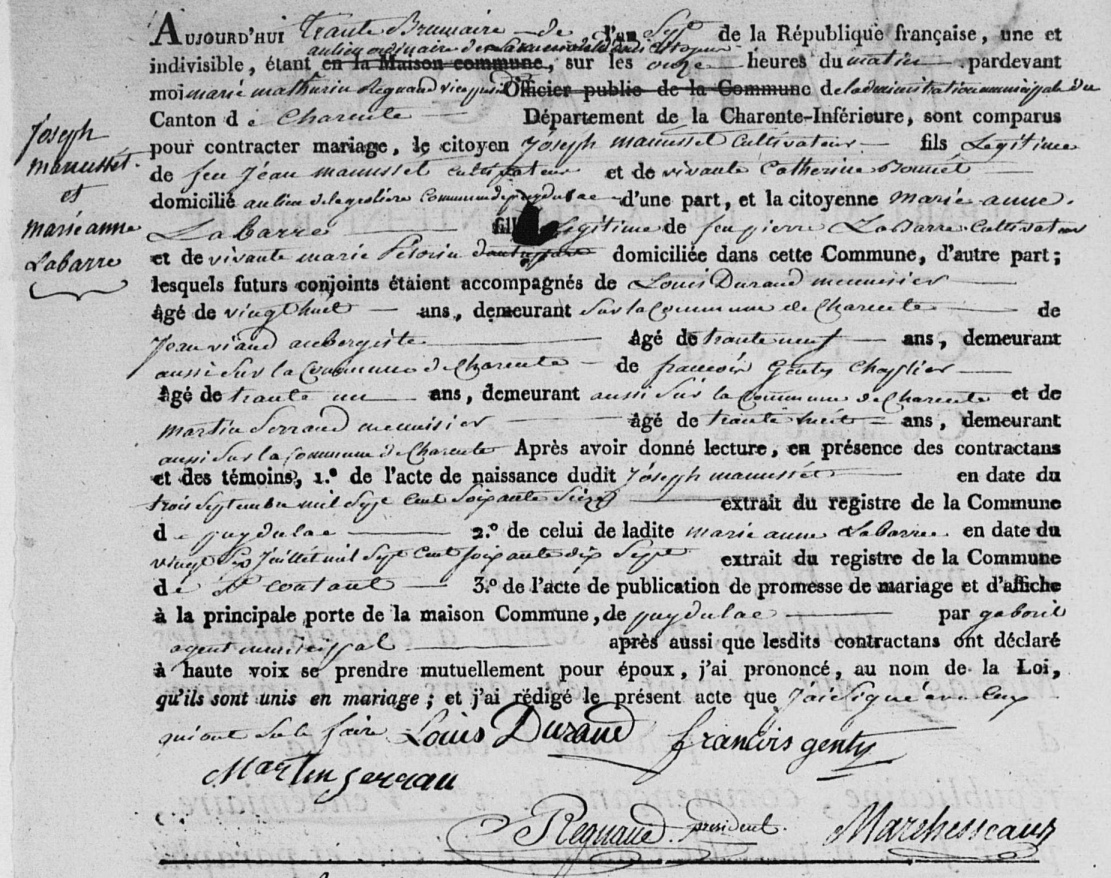 Joseph
manusset
et
marie anne
Labarre
AUJOURD'HUI trante Brumaire de l'an Sept de la République française, une et
au lieu ordinaire de
indivisible, étant en la Maison commune, sur les onze heures du matin pardevant
moi marie mathurin Regnaud Officier public de la Commune de l'administration municipale du
Canton de Charente Département de la Charente-Inférieure, sont comparus
pour contracter mariage, le citoyen Joseph manusset Cultivateur fils Legitime
de feu Jéan manusset cultivateur et de vivante Catherine Bonnet
domicilié au lieu de la Commune de puydulac d'une part, et la citoyenne marie anne
Labarre fille Legitime de feu pierre Labarre Cultivateur
et de vivante marie domiciliée dans cette Commune, d'autre part;
lesquels futurs conjoints étaient accompagnés de Louis Duraud menuisier
âgé de vingt huit ans, demeurant Sur la Commune de Charente de
Jean viaud aubergiste âgé de trante neuf ans, demeurant
aussi Sur la Commune de Charente de francois Genty
âgé de trante un ans, demeurant aussi Sur la Commune de Charente et de
martin Serraud menuisier âgé de trante huit ans, demeurant
aussi Sur la Commune de Charente Après avoir donné lecture, en présence des contractans
et des témoins, 1.º de l'acte de naissance dudit Joseph manusset en date du
trois Septembre mil Sept Cent Soixante Seize extrait du registre de la Commune
de puydulac 2.º de celui de ladite marie anne Labarre en date du
vingt Six Juillet mil Sept Cent Soixante dix Sept extrait du registre de la Commune
de St coutant 3.º de l'acte de publication de promesse de mariage et d'affiche
à la principale porte de la maison Commune, de puydulac par gaborit
agent municipal après aussi que lesdits contractans ont déclaré
à haute voix se prendre mutuellement pour époux, j'ai prononcé, au nom de la Loi,
qu'ils sont unis en mariage; et j'ai rédigé le présent acte que J'ai Signé avec Ceux
qui ont Su le faire Louis Duraud francois genty
Martin serrau
Regnaud president. Marchesseau